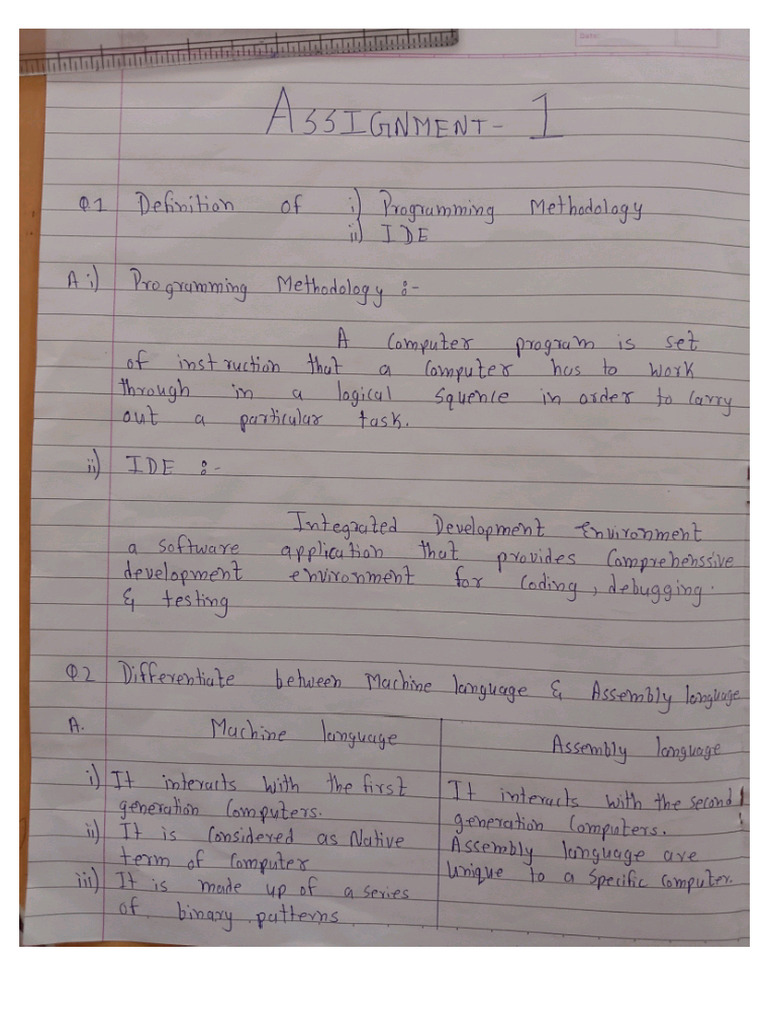 DATE:
ASSIGNMENT- 1
Q1 Definition of i) Programming Methodology
ii) IDE
A i) Programming Methodology :-
A Computer program is set
of instruction that a Computer has to work
through in a logical Squence in order to Carry
out a particular task.
ii) IDE :-
Integrated Development Environment
a software application that provides Comprehenssive
development environment for Coding, debugging
& testing
Q2 Differentiate between Machine language & Assembly language
A. Machine language Assembly language
i) It interacts with the first
generation Computers.
ii) It is Considered as Native
term of Computer
iii) It is made up of a series
of binary patterns
It interacts with the second
generation Computers.
Assembly language are
Unique to a Specific Computer.